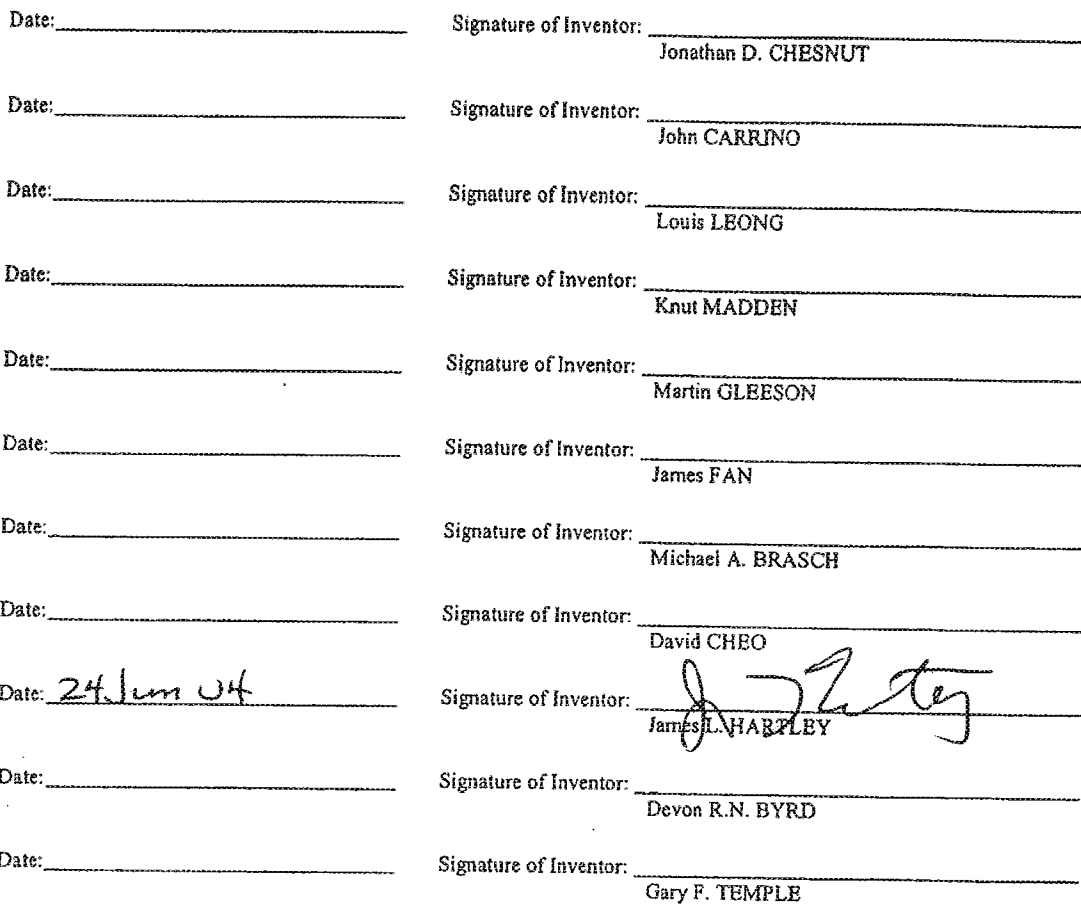 Date: Signature of Inventor:
Jonathan D. CHESNUT
Date: Signature of Inventor:
John CARRINO
Date: Signature of Inventor:
Louis LEONG
Date: Signature of Inventor:
Knut MADDEN
Date: Signature of Inventor:
Martin GLEESON
Date: Signature of Inventor:
James FAN
Date: Signature of Inventor:
Michael A. BRASCH
Date: Signature of Inventor:
David CHEO
Date: 24 Jun 04 Signature of Inventor:
James L. HARTLEY
Date: Signature of Inventor:
Devon R.N. BYRD
Date: Signature of Inventor:
Gary F. TEMPLE